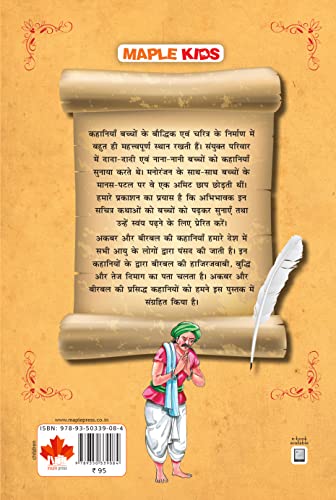 MAPLE KIDS
कहानियाँ बच्चों के बौद्धिक एवं चरित्र के निर्माण में
बहुत ही महत्त्वपूर्ण स्थान रखती हैं। संयुक्त परिवार
में दादा-दादी एवं नाना-नानी बच्चों को कहानियाँ
सुनाया करते थे। मनोरंजन के साथ-साथ बच्चों के
मानस-पटल पर वे एक अमिट छाप छोड़ती थीं।
हमारे प्रकाशन का प्रयास है कि अभिभावक इन
सचित्र कथाओं को बच्चों को पढ़कर सुनाएँ तथा
उन्हें स्वयं पढ़ने के लिए प्रेरित करें।
अकबर और बीरबल की कहानियाँ हमारे देश में
सभी आयु के लोगों द्वारा पंसद की जाती है। इन
कहानियों के द्वारा बीरबल की हाजिरजवाबी, बुद्धि
और तेज दिमाग का पता चलता है। अकबर और
बीरबल की प्रसिद्ध कहानियों को हमने इस पुस्तक में
संग्रहित किया है।
www.maplepress.co.in
ISBN: 978-93-50339-08-4
9 789350 339084
₹ 95
children
e-book
available